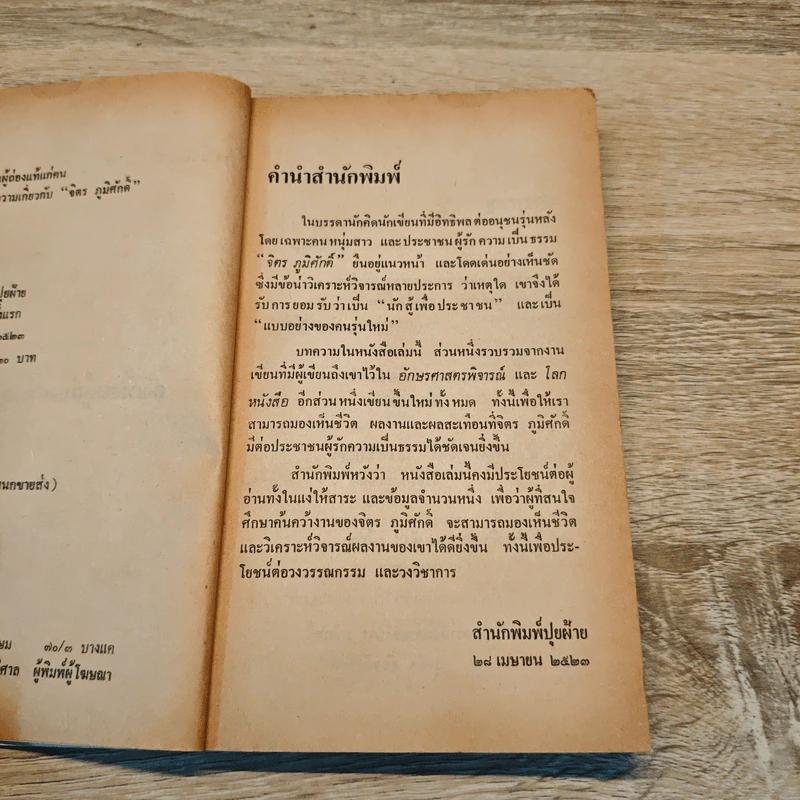 ผู้ถ่องแท้แก่คน
ความเกี่ยวกับ “จิตร ภูมิศักดิ์”
ปุยฝ้าย
แรก
๒๕๒๓
๒๐ บาท
แผนกขายส่ง)
๗๐/๓ บางแค
ผู้พิมพ์ผู้โฆษณา
คำนำสำนักพิมพ์
ในบรรดานักคิดนักเขียนที่มีอิทธิพลต่ออนุชนรุ่นหลัง
โดยเฉพาะคนหนุ่มสาว และประชาชนผู้รักความเป็นธรรม
“จิตร ภูมิศักดิ์” ยืนอยู่แนวหน้า และโดดเด่นอย่างเห็นชัด
ซึ่งมีข้อน่าวิเคราะห์วิจารณ์หลายประการ ว่าเหตุใด เขาจึงได้
รับการยอมรับว่าเป็น “นักสู้เพื่อประชาชน” และเป็น
“แบบอย่างของคนรุ่นใหม่”
บทความในหนังสือเล่มนี้ ส่วนหนึ่งรวบรวมจากงาน
เขียนที่มีผู้เขียนถึงเขาไว้ใน อักษรศาสตรพิจารณ์ และ โลก
หนังสือ อีกส่วนหนึ่งเขียนขึ้นใหม่ทั้งหมด ทั้งนี้เพื่อให้เรา
สามารถมองเห็นชีวิต ผลงานและผลสะเทือนที่จิตร ภูมิศักดิ์
มีต่อประชาชนผู้รักความเป็นธรรมได้ชัดเจนยิ่งขึ้น
สำนักพิมพ์หวังว่า หนังสือเล่มนี้คงมีประโยชน์ต่อผู้
อ่านทั้งในแง่ให้สาระ และข้อมูลจำนวนหนึ่ง เพื่อว่าผู้ที่สนใจ
ศึกษาค้นคว้างานของจิตร ภูมิศักดิ์ จะสามารถมองเห็นชีวิต
และวิเคราะห์วิจารณ์ผลงานของเขาได้ดียิ่งขึ้น ทั้งนี้เพื่อประ-
โยชน์ต่อวงวรรณกรรม และวงวิชาการ
สำนักพิมพ์ปุยฝ้าย
๒๘ เมษายน ๒๕๒๓